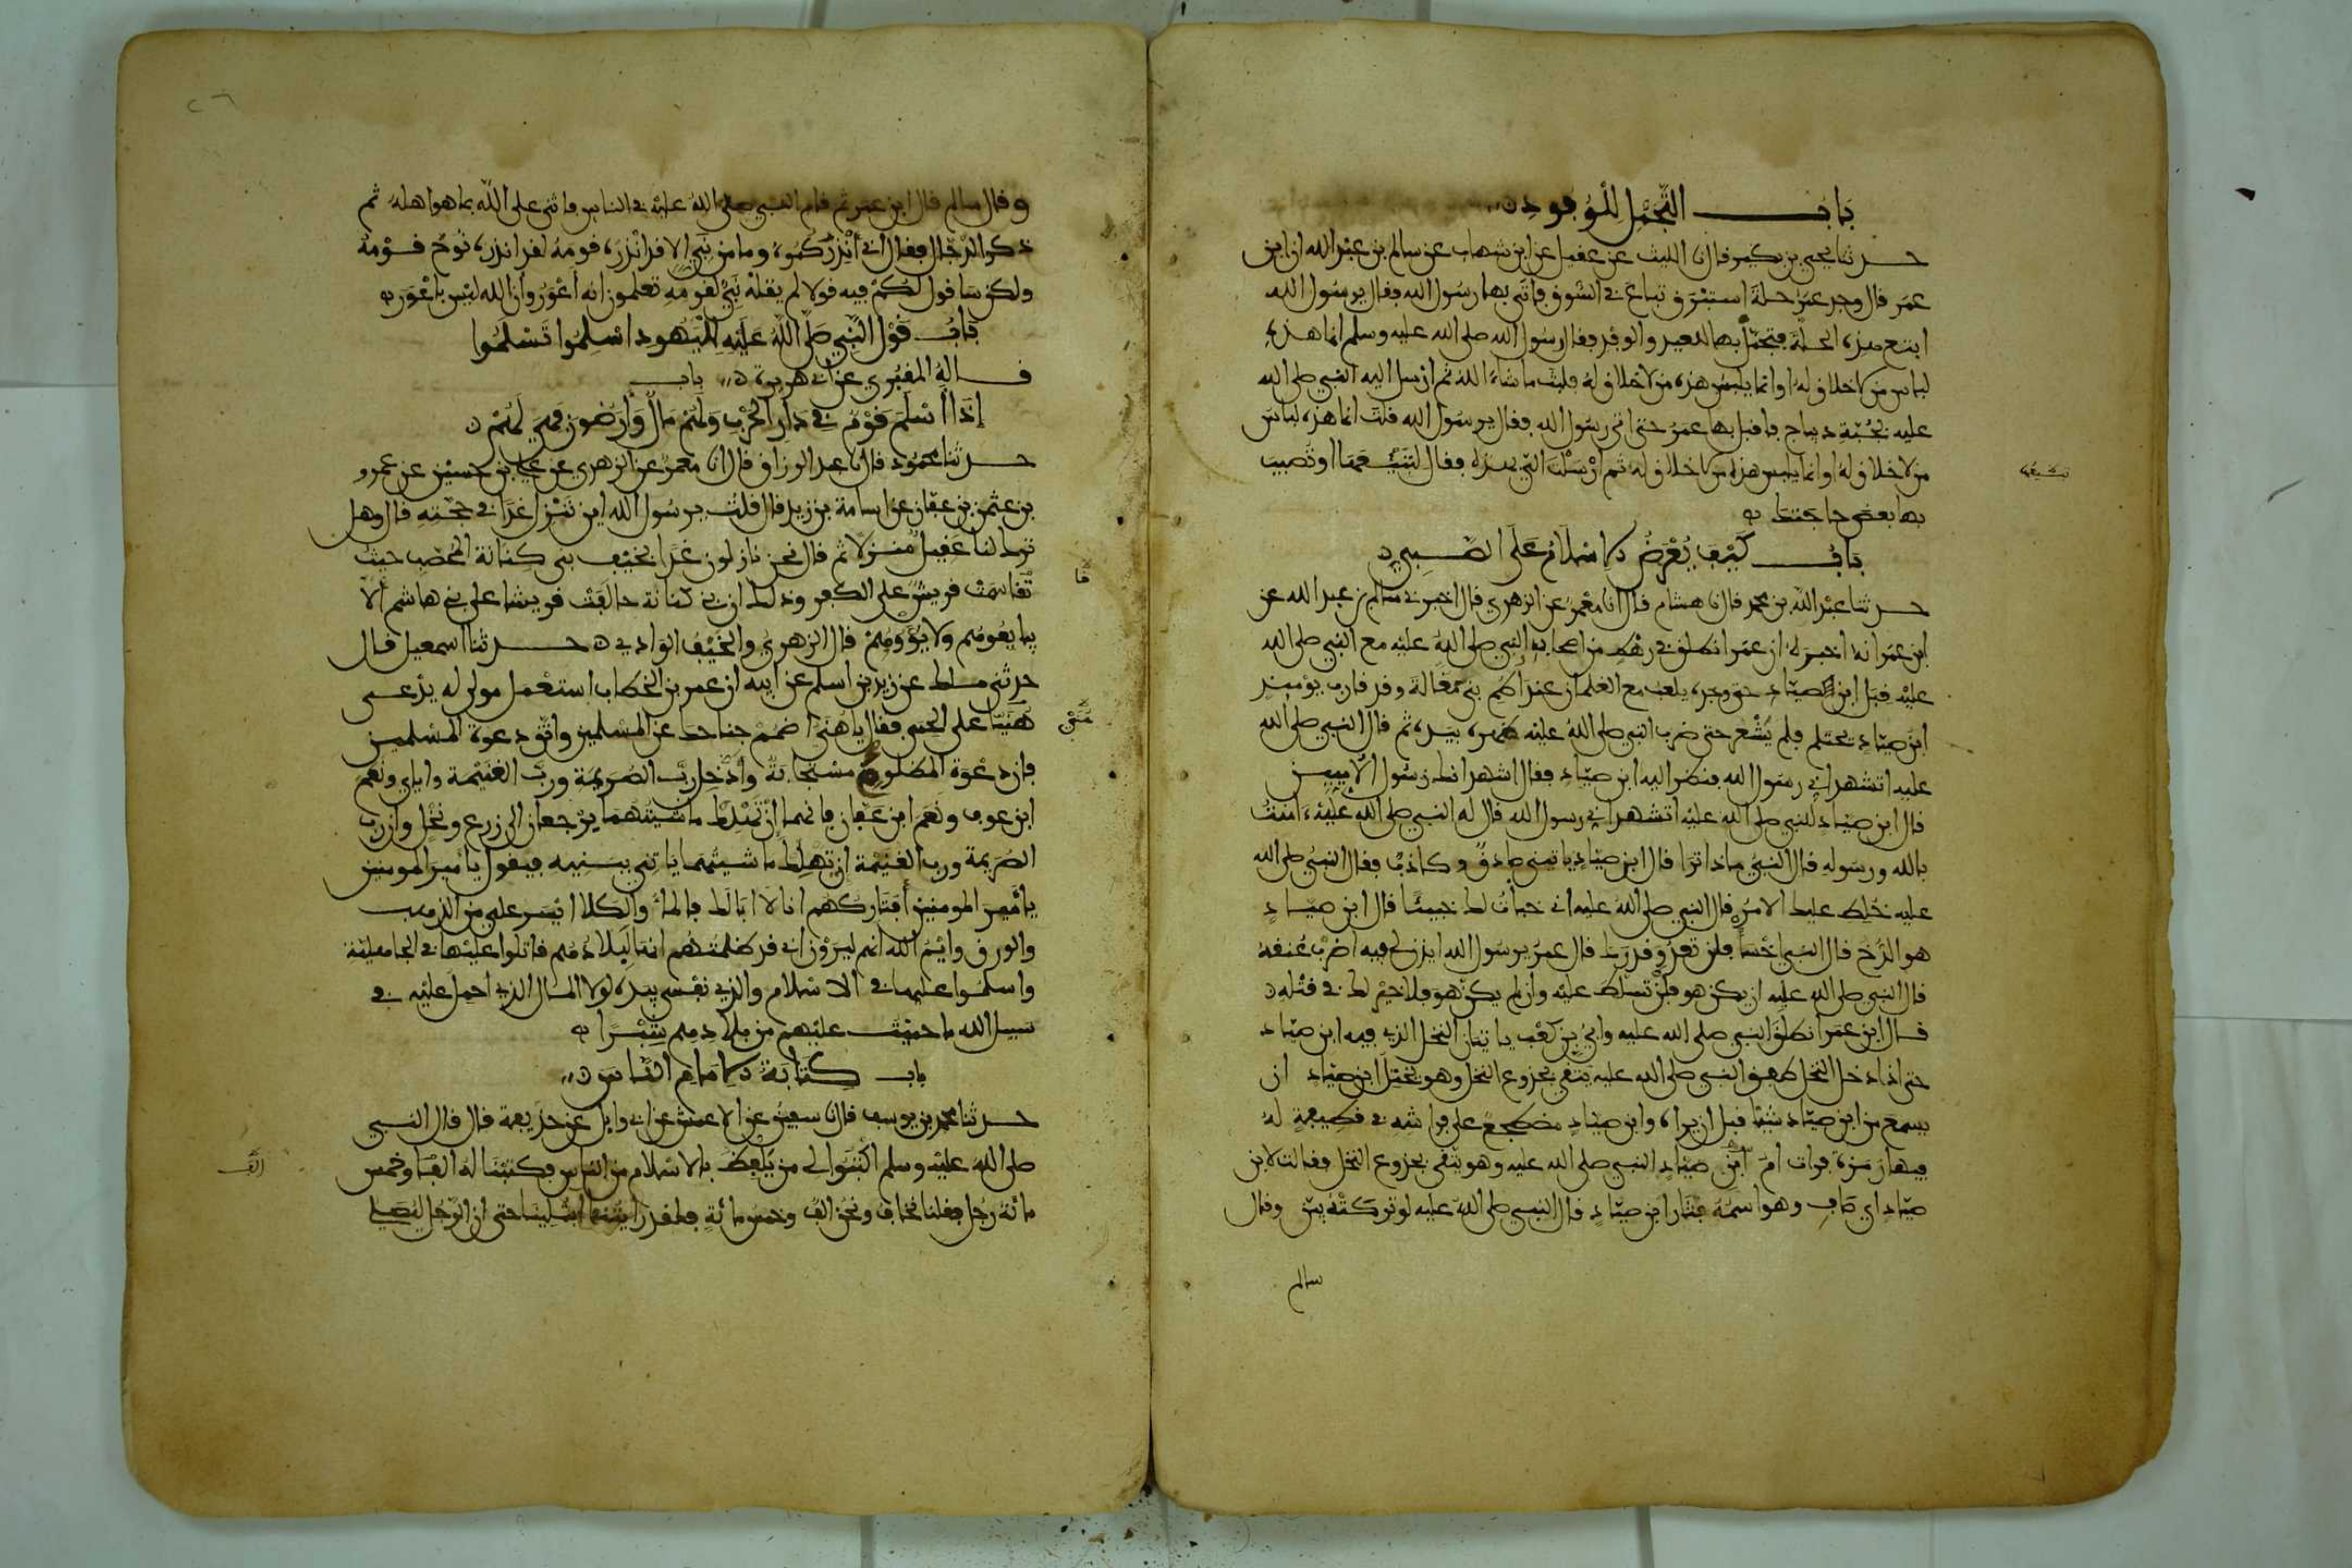 باب التجمل للوفود
حدثنا يحيى بن بكير قال نا الليث عن عقيل عن ابن شهاب عن سالم بن عبد الله ان ابن
عمر قال وجد عمر حلة استبرق تباع في السوق فاتى بها رسول الله فقال يرسول الله
ابتع هذه الحلة فتجمل بها للعيد والوفد فقال رسول الله صلى الله عليه وسلم انما هذه
لباس من لا خلاق له او انما يلبس هذه من لا خلاق له فلبث ما شاء الله ثم ارسل اليه النبي صلى الله
عليه بجبة ديباج فاقبل بها عمر حتى اتى رسول الله فقال يرسول الله قلت انما هذه لباس
من لا خلاق له او انما يلبس هذه من لا خلاق له ثم ارسلت الي بهذه فقال تبيعها او تصيب
بها بعض حاجتك
باب كيف يعرض الاسلام على الصبي
حدثنا عبد الله بن محمد قال نا هشام قال انا معمر عن الزهري قال اخبرني سالم بن عبد الله عن
ابن عمر انه اخبره ان عمر انطلق في رهط من اصحاب النبي صلى الله عليه مع النبي صلى الله
عليه قبل ابن الصياد حتى وجده يلعب مع الغلمان عند اطم بني مغالة وقد قارب يومئذ
ابن صياد يحتلم فلم يشعر حتى ضرب النبي صلى الله عليه ظهره بيده ثم قال النبي صلى الله
عليه اتشهد اني رسول الله فنظر اليه ابن صياد فقال اشهد انك رسول الاميين
قال ابن صياد للنبي صلى الله عليه اتشهد اني رسول الله قال له النبي صلى الله عليه ءامنت
بالله ورسوله قال النبي ماذا ترا قال ابن صياد ياتيني صادق وكاذب فقال النبي صلى الله
عليه خلط عليك الامر قال النبي صلى الله عليه اني خبات لك خبيئا قال ابن صياد
هو الدخ قال النبي اخسا فلن تعدو قدرك قال عمر يرسول الله ايذن لي فيه اضرب عنقه
قال النبي صلى الله عليه ان يكن هو فلن تسلط عليه وان لم يكن هو فلا خير لك في قتله
قال ابن عمر انطلق النبي صلى الله عليه وابي بن كعب ياتيان النخل الذي فيه ابن صياد
حتى اذا دخل النخل طفق النبي صلى الله عليه يتقي بجذوع النخل وهو يختل ابن صياد ان
يسمع من ابن صياد شيئا قبل ان يراه وابن صياد مضطجع على فراشه في قطيفة له
فيها رمزة فرات ام ابن صياد النبي صلى الله عليه وهو يتقي بجذوع النخل فقالت لابن
صياد اي صاف وهو اسمه فثار ابن صياد فقال النبي صلى الله عليه لو تركته بين وقال
سالم
وقال سالم قال ابن عمر ثم قام النبي صلى الله عليه في الناس فاثنى على الله بما هو اهله ثم
ذكر الدجال فقال اني انذركموه وما من نبي الا قد انذره قومه لقد انذره نوح قومه
ولكن ساقول لكم فيه قولا لم يقله نبي لقومه تعلمون انه اعور وان الله ليس باعور
باب قول النبي صلى الله عليه لليهود اسلموا تسلموا
قاله المقبري عن ابي هريرة باب
اذا اسلم قوم في دار الحرب ولهم مال وارضون فهي لهم
حدثنا محمود قال نا عبد الرزاق قال انا معمر عن الزهري عن علي بن حسين عن عمرو
بن عثمن بن عفان عن اسامة بن زيد قال قلت يرسول الله اين تنزل غدا في حجته قال وهل
ترك لنا عقيل منزلا ثم قال نحن نازلون غدا بخيف بني كنانة المحصب حيث
تقاسمت قريش على الكفر وذلك ان بني كنانة حالفت قريشا على بني هاشم الا
يبايعوهم ولا يؤووهم قال الزهري والخيف الوادي حدثنا اسمعيل قال
حدثني ملك عن زيد بن اسلم عن ابيه ان عمر بن الخطاب استعمل مولى له يدعى
هنيا على الحمى فقال يا هني اضمم جناحك عن المسلمين واتق دعوة المسلمين
فان دعوة المظلوم مستجابة وادخل رب الصريمة ورب الغنيمة واياي ونعم
ابن عوف ونعم ابن عفان فانهما ان تهلك ماشيتهما يرجعان الى زرع ونخل وان رب
الصريمة ورب الغنيمة ان تهلك ماشيتهما ياتني ببنيه فيقول يا امير المومنين
يا امير المومنين افتاركهم انا لا ابا لك فالماء والكلا ايسر علي من الذهب
والورق وايم الله انهم ليرون اني قد ظلمتهم انها لبلادهم قاتلوا عليها في الجاهلية
واسلموا عليها في الاسلام والذي نفسي بيده لولا المال الذي احمل عليه في
سبيل الله ما حميت عليهم من بلادهم شبرا
باب كتابة الامام الناس
حدثنا محمد بن يوسف قال نا سفين عن الاعمش عن ابي وايل عن حذيفة قال قال النبي
صلى الله عليه وسلم اكتبوا لي من يلفظ بالاسلام من الناس فكتبنا له الفا وخمس
مائة رجل فقلنا نخاف ونحن الف وخمس مائة فلقد رايتنا ابتلينا حتى ان الرجل ليصلي